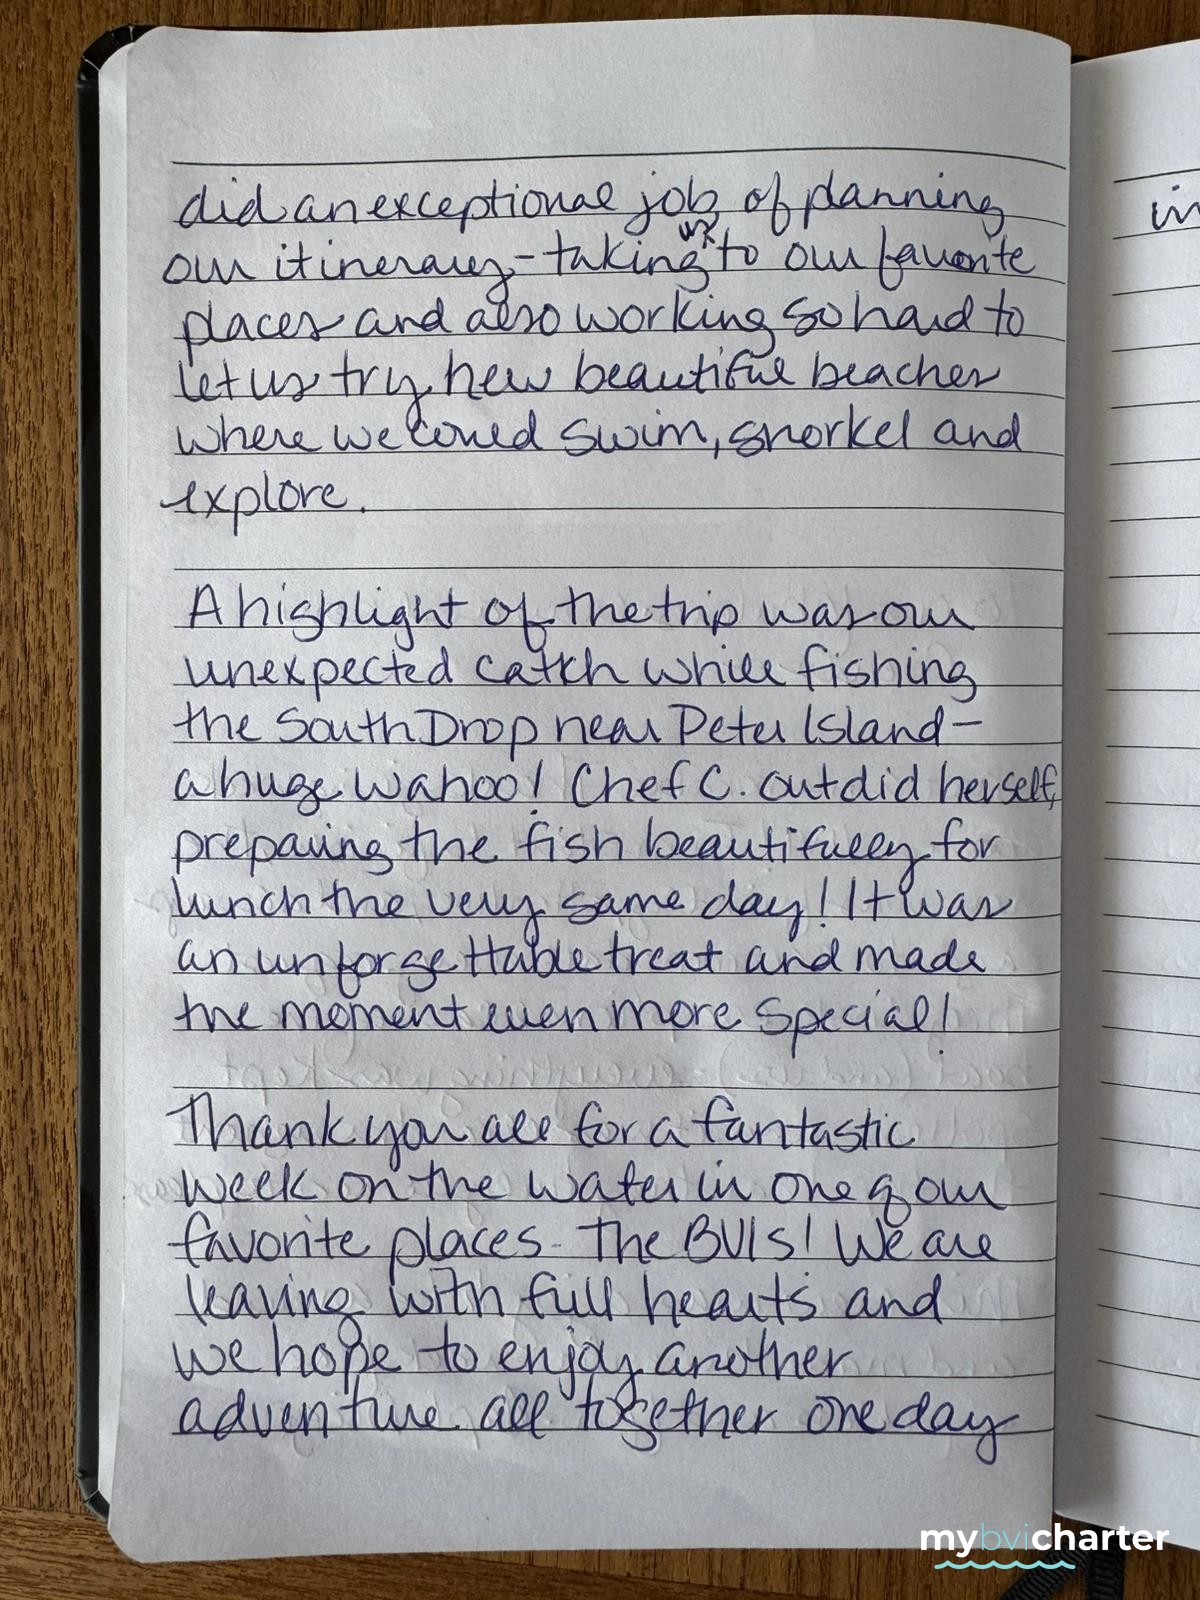 did an exceptional job of planning
our itinerary - taking us to our favorite
places and also working so hard to
let us try new beautiful beaches
where we could swim, snorkel and
explore.
A highlight of the trip was our
unexpected catch while fishing
the South Drop near Peter Island -
a huge Wahoo! Chef C. outdid herself,
preparing the fish beautifully for
lunch the very same day! It was
an unforgettable treat and made
the moment even more special!
Thank you all for a fantastic
week on the water in one of our
favorite places - The BVIs! We are
leaving with full hearts and
we hope to enjoy another
adventure all together one day
mybvicharter